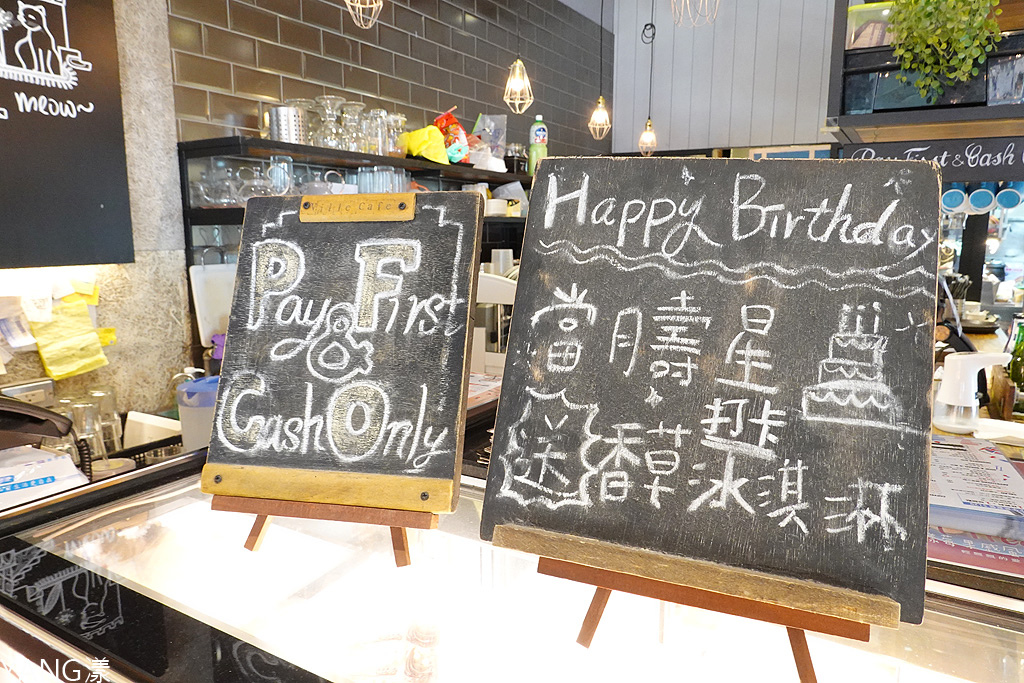 meow~
Ville Cafe
Pay First
&
Cash Only
Pay First & Cash
Happy Birthday
當月壽星
打卡
送香草冰淇淋